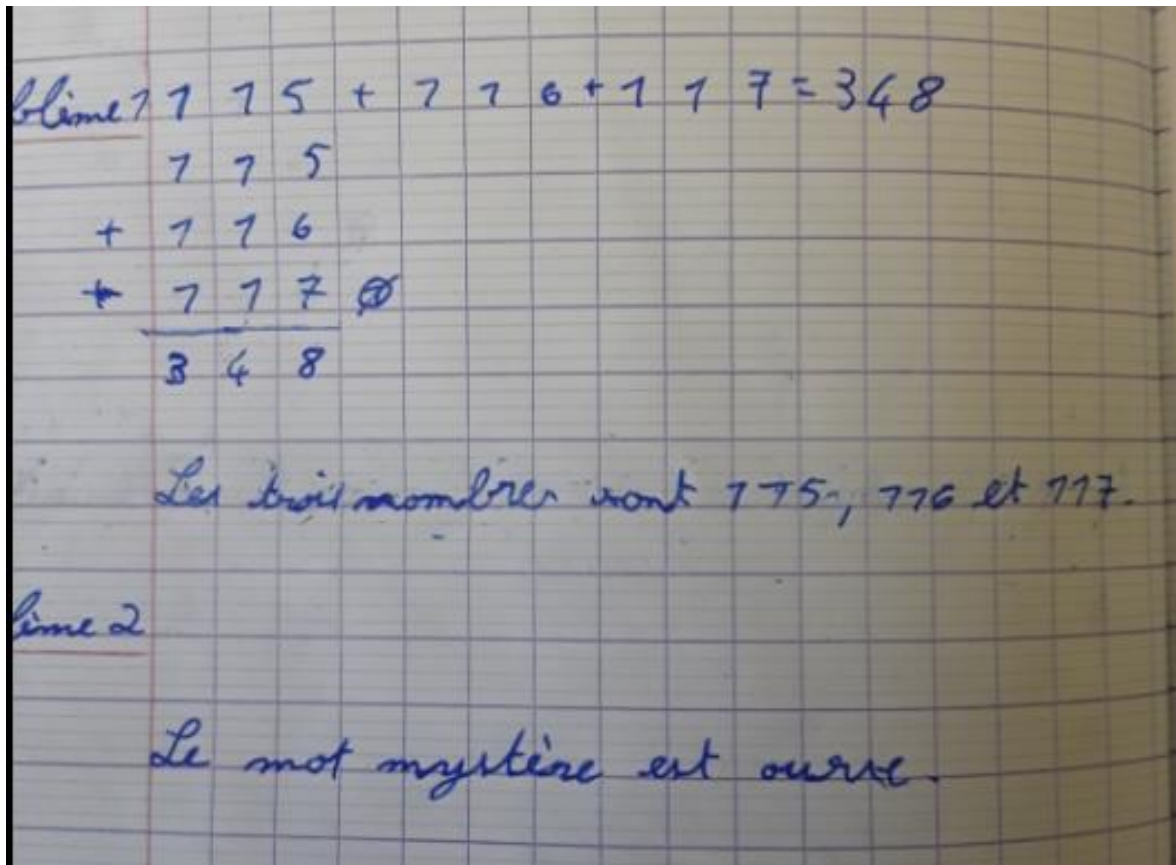 blème 1 115 + 116 + 117 = 348
115
+ 116
+ 117
348
Les trois nombres sont 115, 116 et 117.
lème 2
Le mot mystère est ourse.